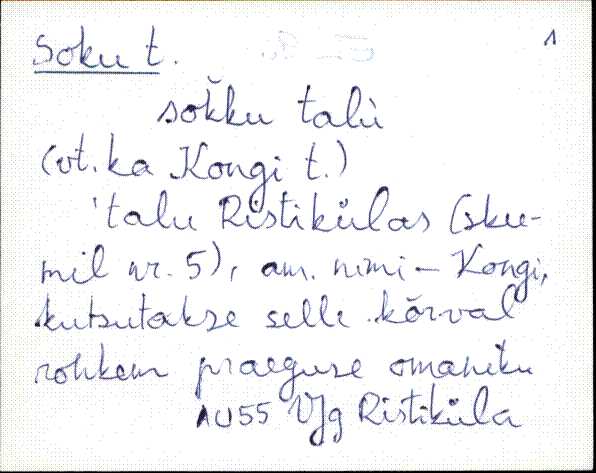 Soku t. 1
sok̆ku talù
(vt. ka Kongi t.)
'talu Ristikülas (sku-
mil nr. 5), am. nimi – Kongi,
kutsutakse selle kõrval
rohkem praeguse omaniku
AU55 Vjg Ristiküla